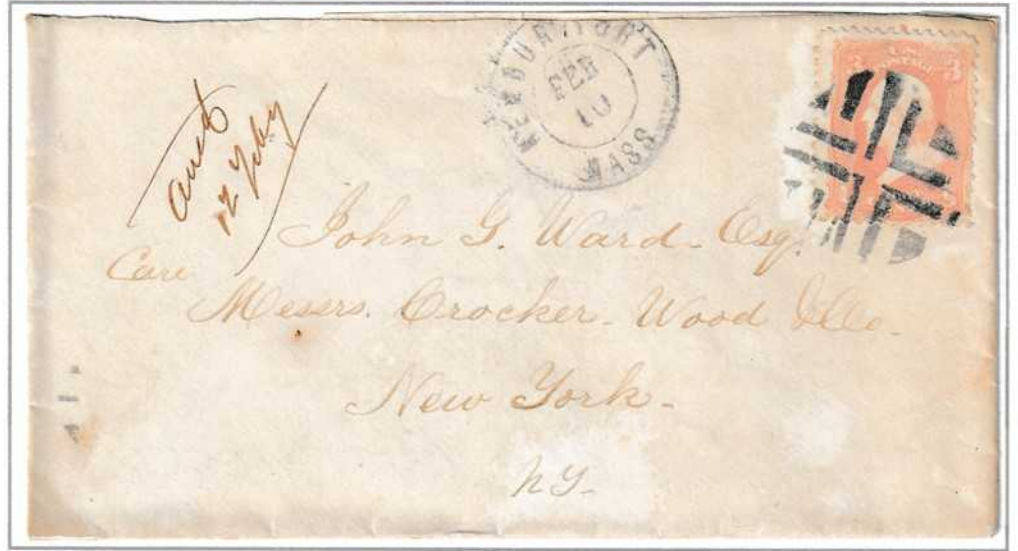 NEWBURYPORT
FEB
10
MASS
U.S.
POSTAGE
3 3
John G. Ward. Esq.
Care
Messrs. Crocker. Wood & Co.
New York.
NY.